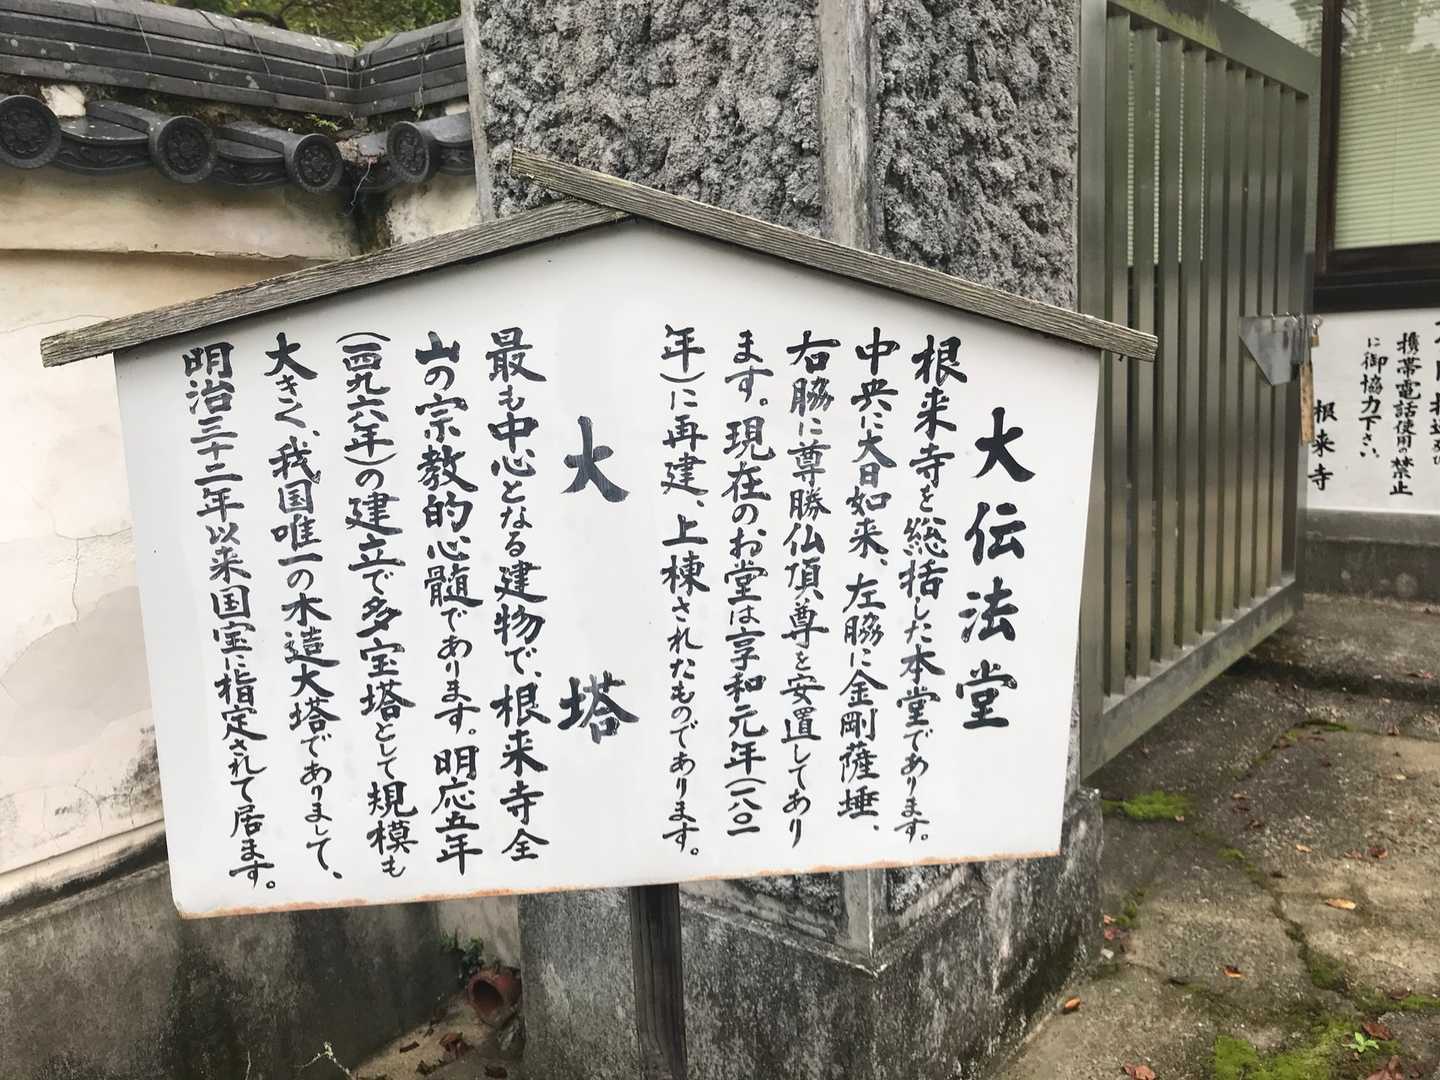 大伝法堂
根来寺を総括した本堂であります。
中央に大日如来、左脇に金剛薩埵、
右脇に尊勝仏頂尊を安置してあり
ます。現在のお堂は享和元年(一八〇一
年)に再建、上棟されたものであります。
大塔
最も中心となる建物で、根来寺全
山の宗教的心髄であります。明応五年
(一四九六年)の建立で多宝塔として規模も
大きく、我国唯一の木造大塔でありまして、
明治三十二年以来国宝に指定されて居ます。
携帯電話使用の禁止
に御協力下さい
根来寺